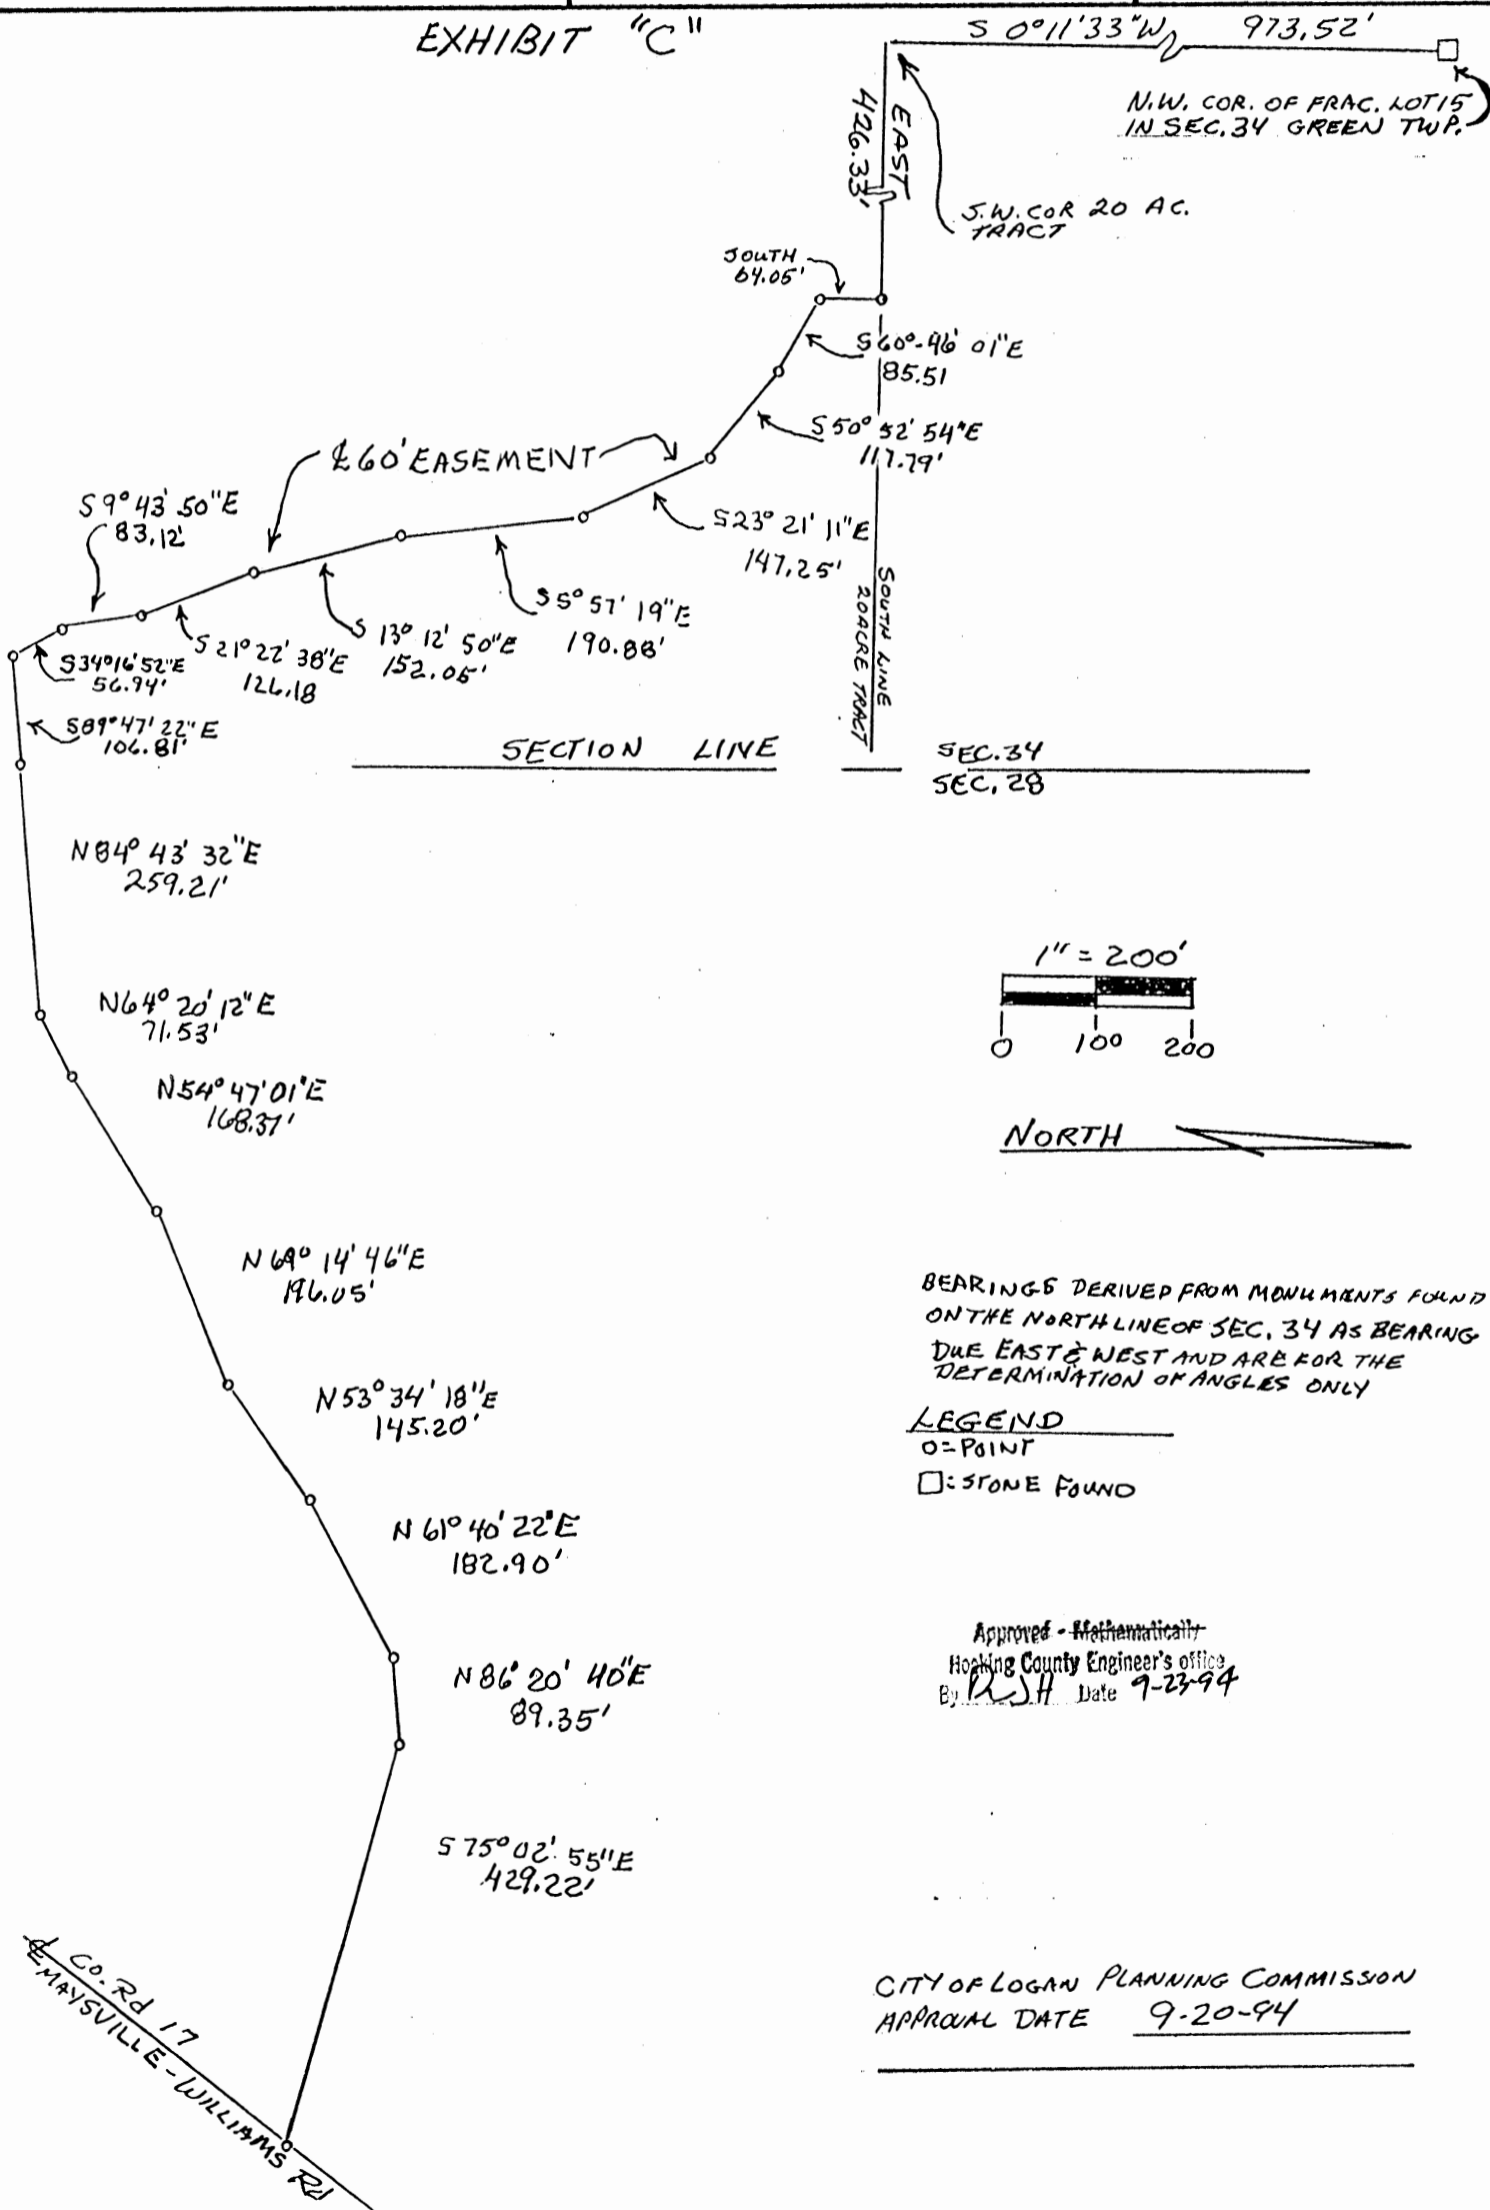 EXHIBIT "C"
S 0°11'33"W 973.52'
N.W. COR. OF FRAC. LOT 15
IN SEC. 34 GREEN TWP.
EAST
426.33'
S.W. COR 20 AC.
TRACT
SOUTH
64.05'
S60°-46' 01"E
85.51
S50° 52' 54"E
117.79'
℄ 60' EASEMENT
S23° 21' 11"E
147.25'
S9° 43' 50"E
83.12'
S5° 57' 19"E
190.88'
S 13° 12' 50"E
152.05'
S21° 22' 38"E
126.18
S34°16'52"E
56.94'
S89°47'22"E
106.81'
SOUTH LINE
20 ACRE TRACT
SECTION LINE
SEC. 34
SEC. 28
N84° 43' 32"E
259.21'
N64° 20' 12"E
71.53'
N54° 47' 01"E
168.37'
N69° 14' 46"E
196.05'
N53° 34' 18"E
145.20'
N 61° 40' 22"E
182.90'
N86° 20' 40"E
89.35'
S 75° 02' 55"E
429.22'
℄ CO. Rd 17
MAYSVILLE-WILLIAMS Rd
1" = 200'
0 100 200
NORTH
BEARINGS DERIVED FROM MONUMENTS FOUND
ON THE NORTH LINE OF SEC. 34 AS BEARING
DUE EAST & WEST AND ARE FOR THE
DETERMINATION OF ANGLES ONLY
LEGEND
O=POINT
□: STONE FOUND
Approved - Mathematically
Hocking County Engineer's office
By RJH Date 9-23-94
CITY OF LOGAN PLANNING COMMISSION
APPROVAL DATE 9-20-94